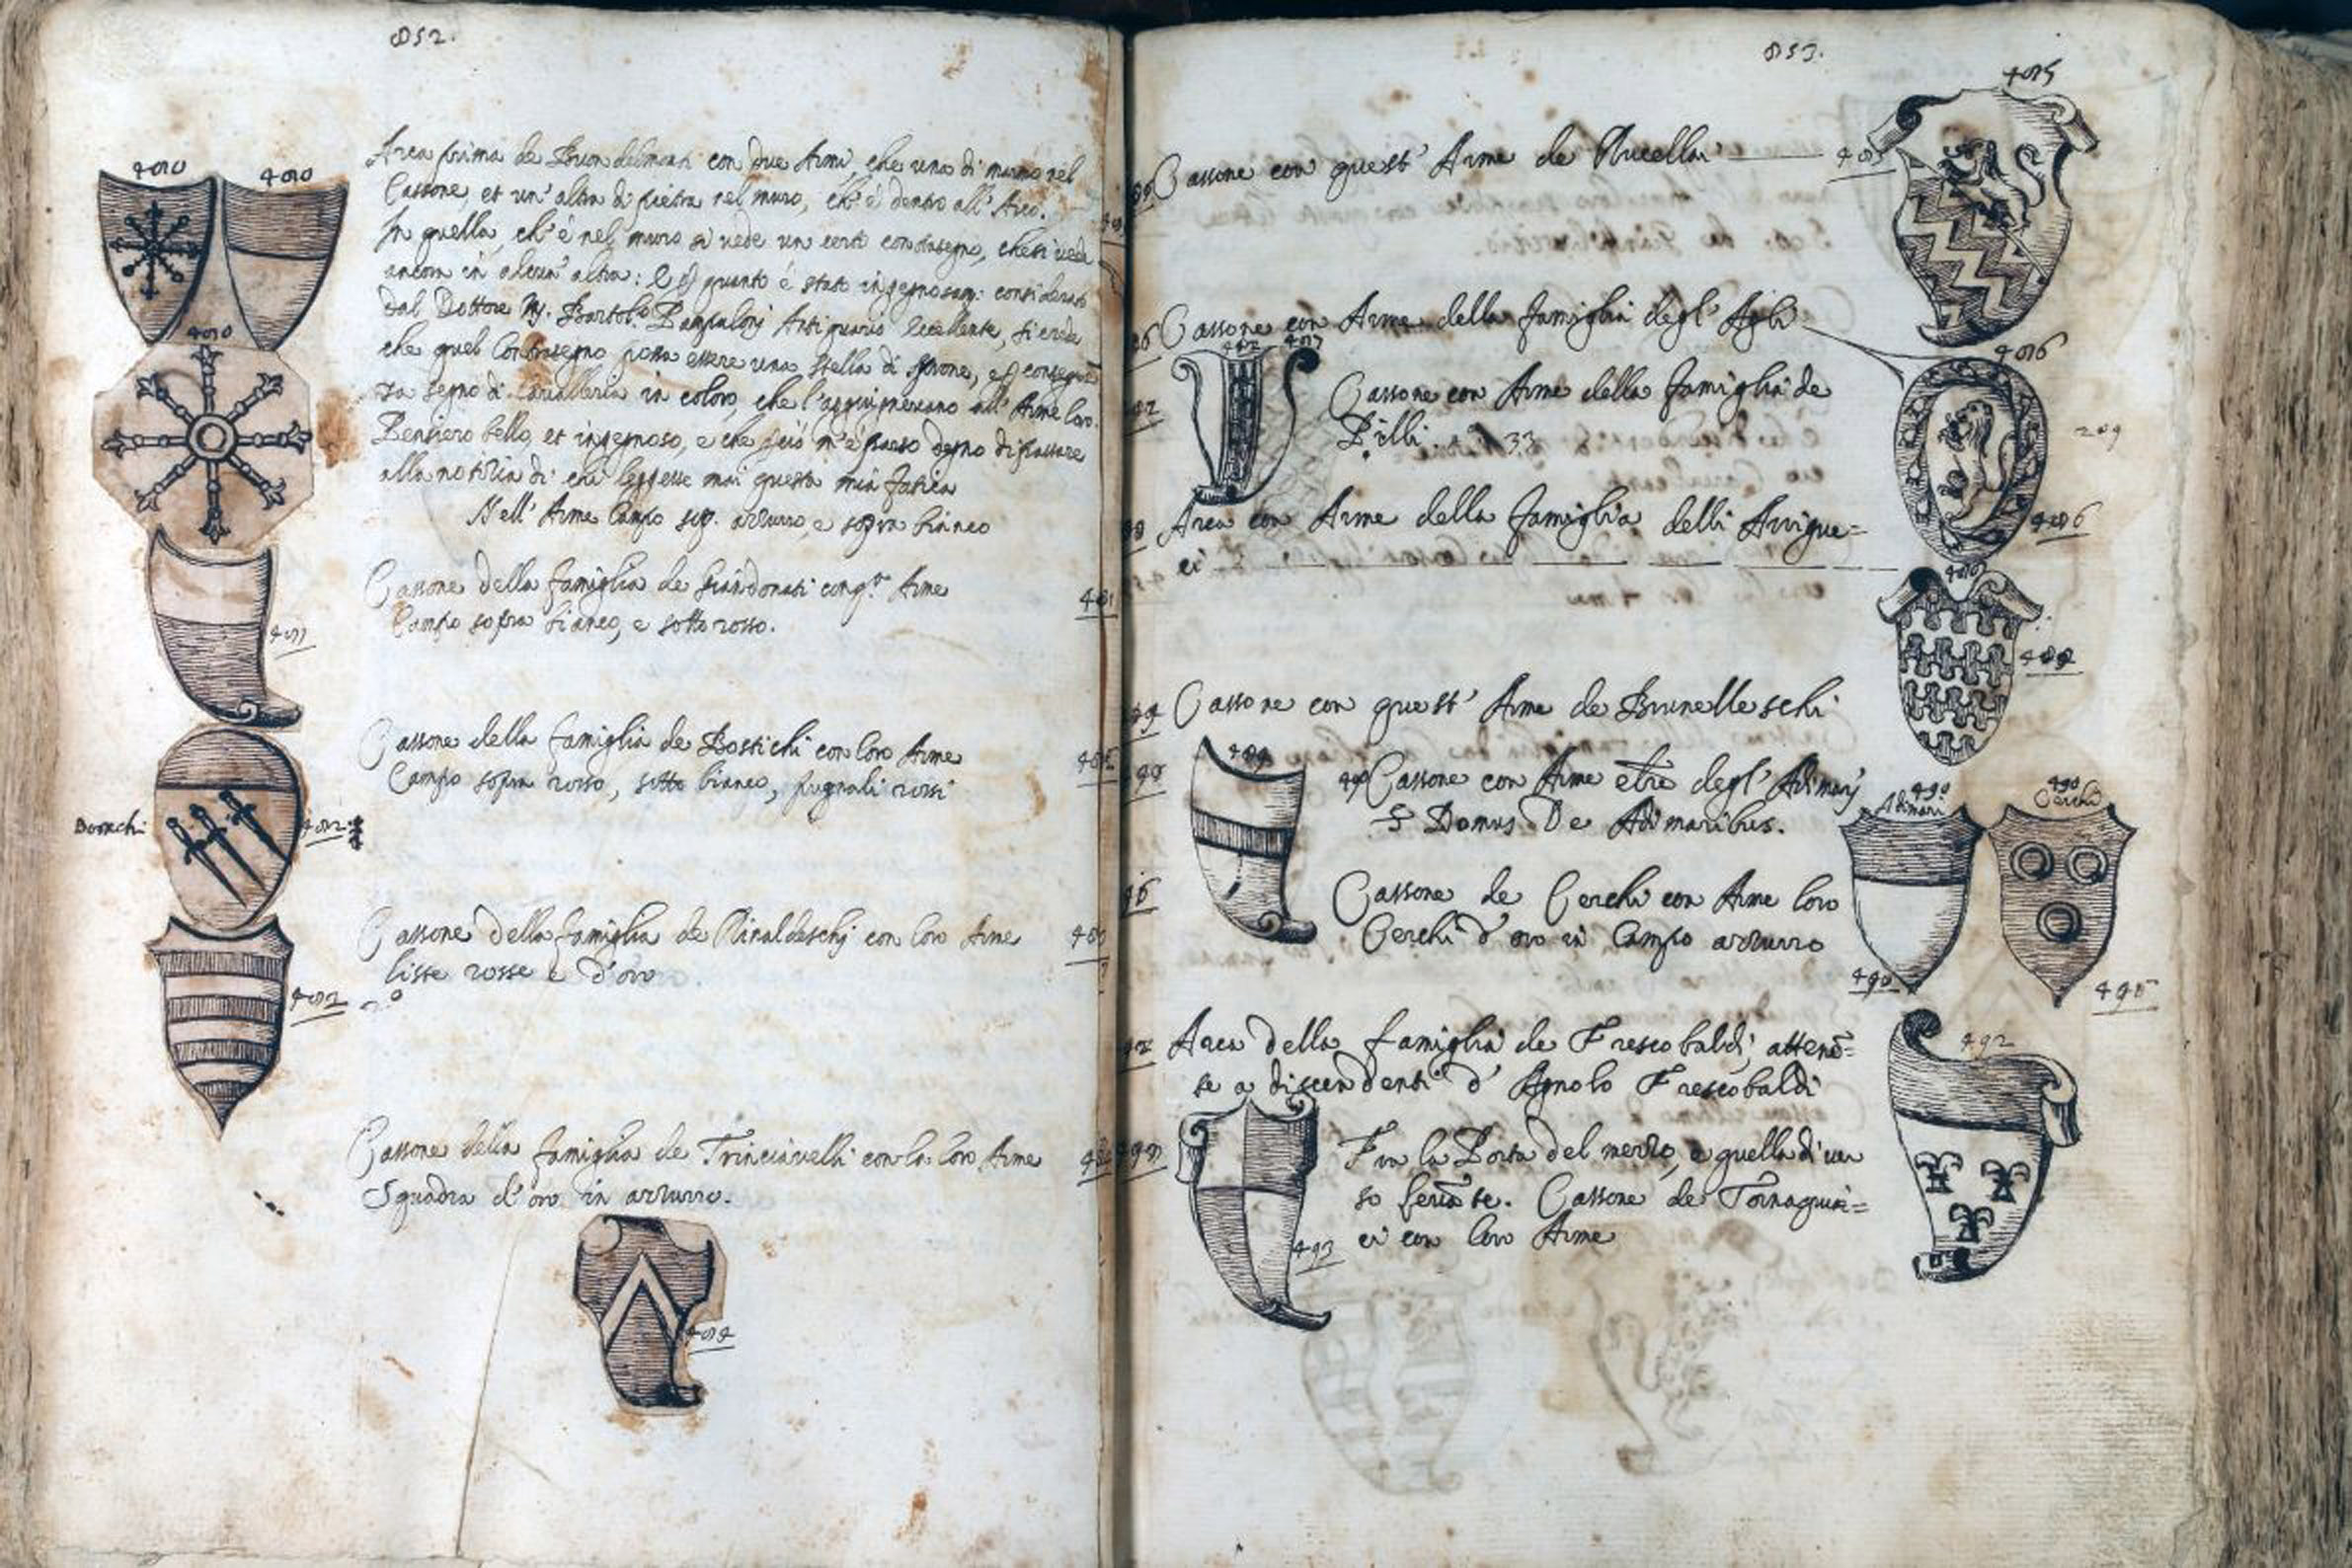 852.
480 480
Arca prima de Buondelmonti con due Armi, che una di marmo nel
Cassone, et un' altra di pietra nel muro, ch' è dentro all' Arco.
In quella, ch' è nel muro si vede un certo contrasegno, che si vede
ancora in alcun' altra: e quanto è stato ingegnosam: considerato
dal Dottore Bartol: Antiquario Eccellente, si crede
che quel Contrasegno possa essere una stella di sprone, e consegu
segno di Cavalleria in coloro, che l'aggiugnevano all' Arme loro.
Pensiero bello, et ingegnoso, e che perciò m'è parso degno di passare
alla notizia di chi leggesse mai questa mia fatica
Nell' Arme Campo azzurro, e sopra bianco
480
Cassone della famiglia de Giandonati con q.ta Arme
Campo sopra bianco, e sotto rosso.
481
Cassone della famiglia de Bostichi con loro Arme
Campo sopra rosso, sotto bianco, pugnali rossi
482
Cassone della famiglia de Rinaldeschi con loro Arme
liste rosse e d'oro
Cassone della famiglia de Trinciavelli con la loro Arme
Squadra d'oro in azzurro.
484
853.
485
Cassone con quest' Arme de Rucellai
Cassone con Arme della famiglia degl' Agli
486
487
Cassone con Arme della famiglia de
Pilli. 33
486
Arca con Arme della famiglia delli Arrigue=
ci
488
Cassone con quest' Arme de Brunelleschi
489
490 Cassone con Arme degl' Adimarj
S Domus De Adimaribus.
490 Adimari
490 Cerchi
Cassone de Cerchi con Arme loro
Cerchi d' oro in Campo azzurro
490
Arca della famiglia de Frescobaldi, attenē=
te a discendenti d' Agnolo Frescobaldi
492
Fra la Porta del mezzo, e quella di ver
so levāte. Cassone de Tornaquin=
ci con loro Arme
493